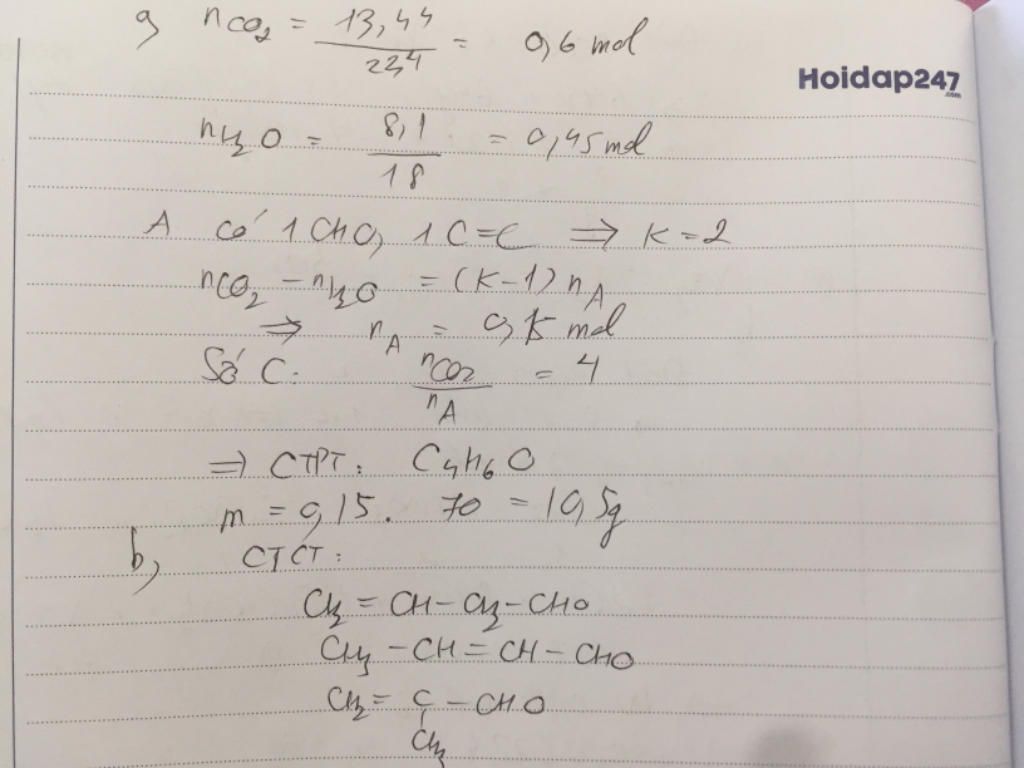 a, nCO₂ = 13,44 / 22,4 = 0,6 mol
Hoidap247
.com
nH₂O = 8,1 / 18 = 0,45 mol
A có 1 CHO, 1 C=C ⇒ K = 2
nCO₂ - nH₂O = (K-1) nA
⇒ nA = 0,15 mol
Số C: nCO₂ / nA = 4
⇒ CTPT: C₄H₆O
m = 0,15 . 70 = 10,5g
b, CTCT:
CH₂ = CH - CH₂ - CHO
CH₃ - CH = CH - CHO
CH₂ = C - CHO
CH₃